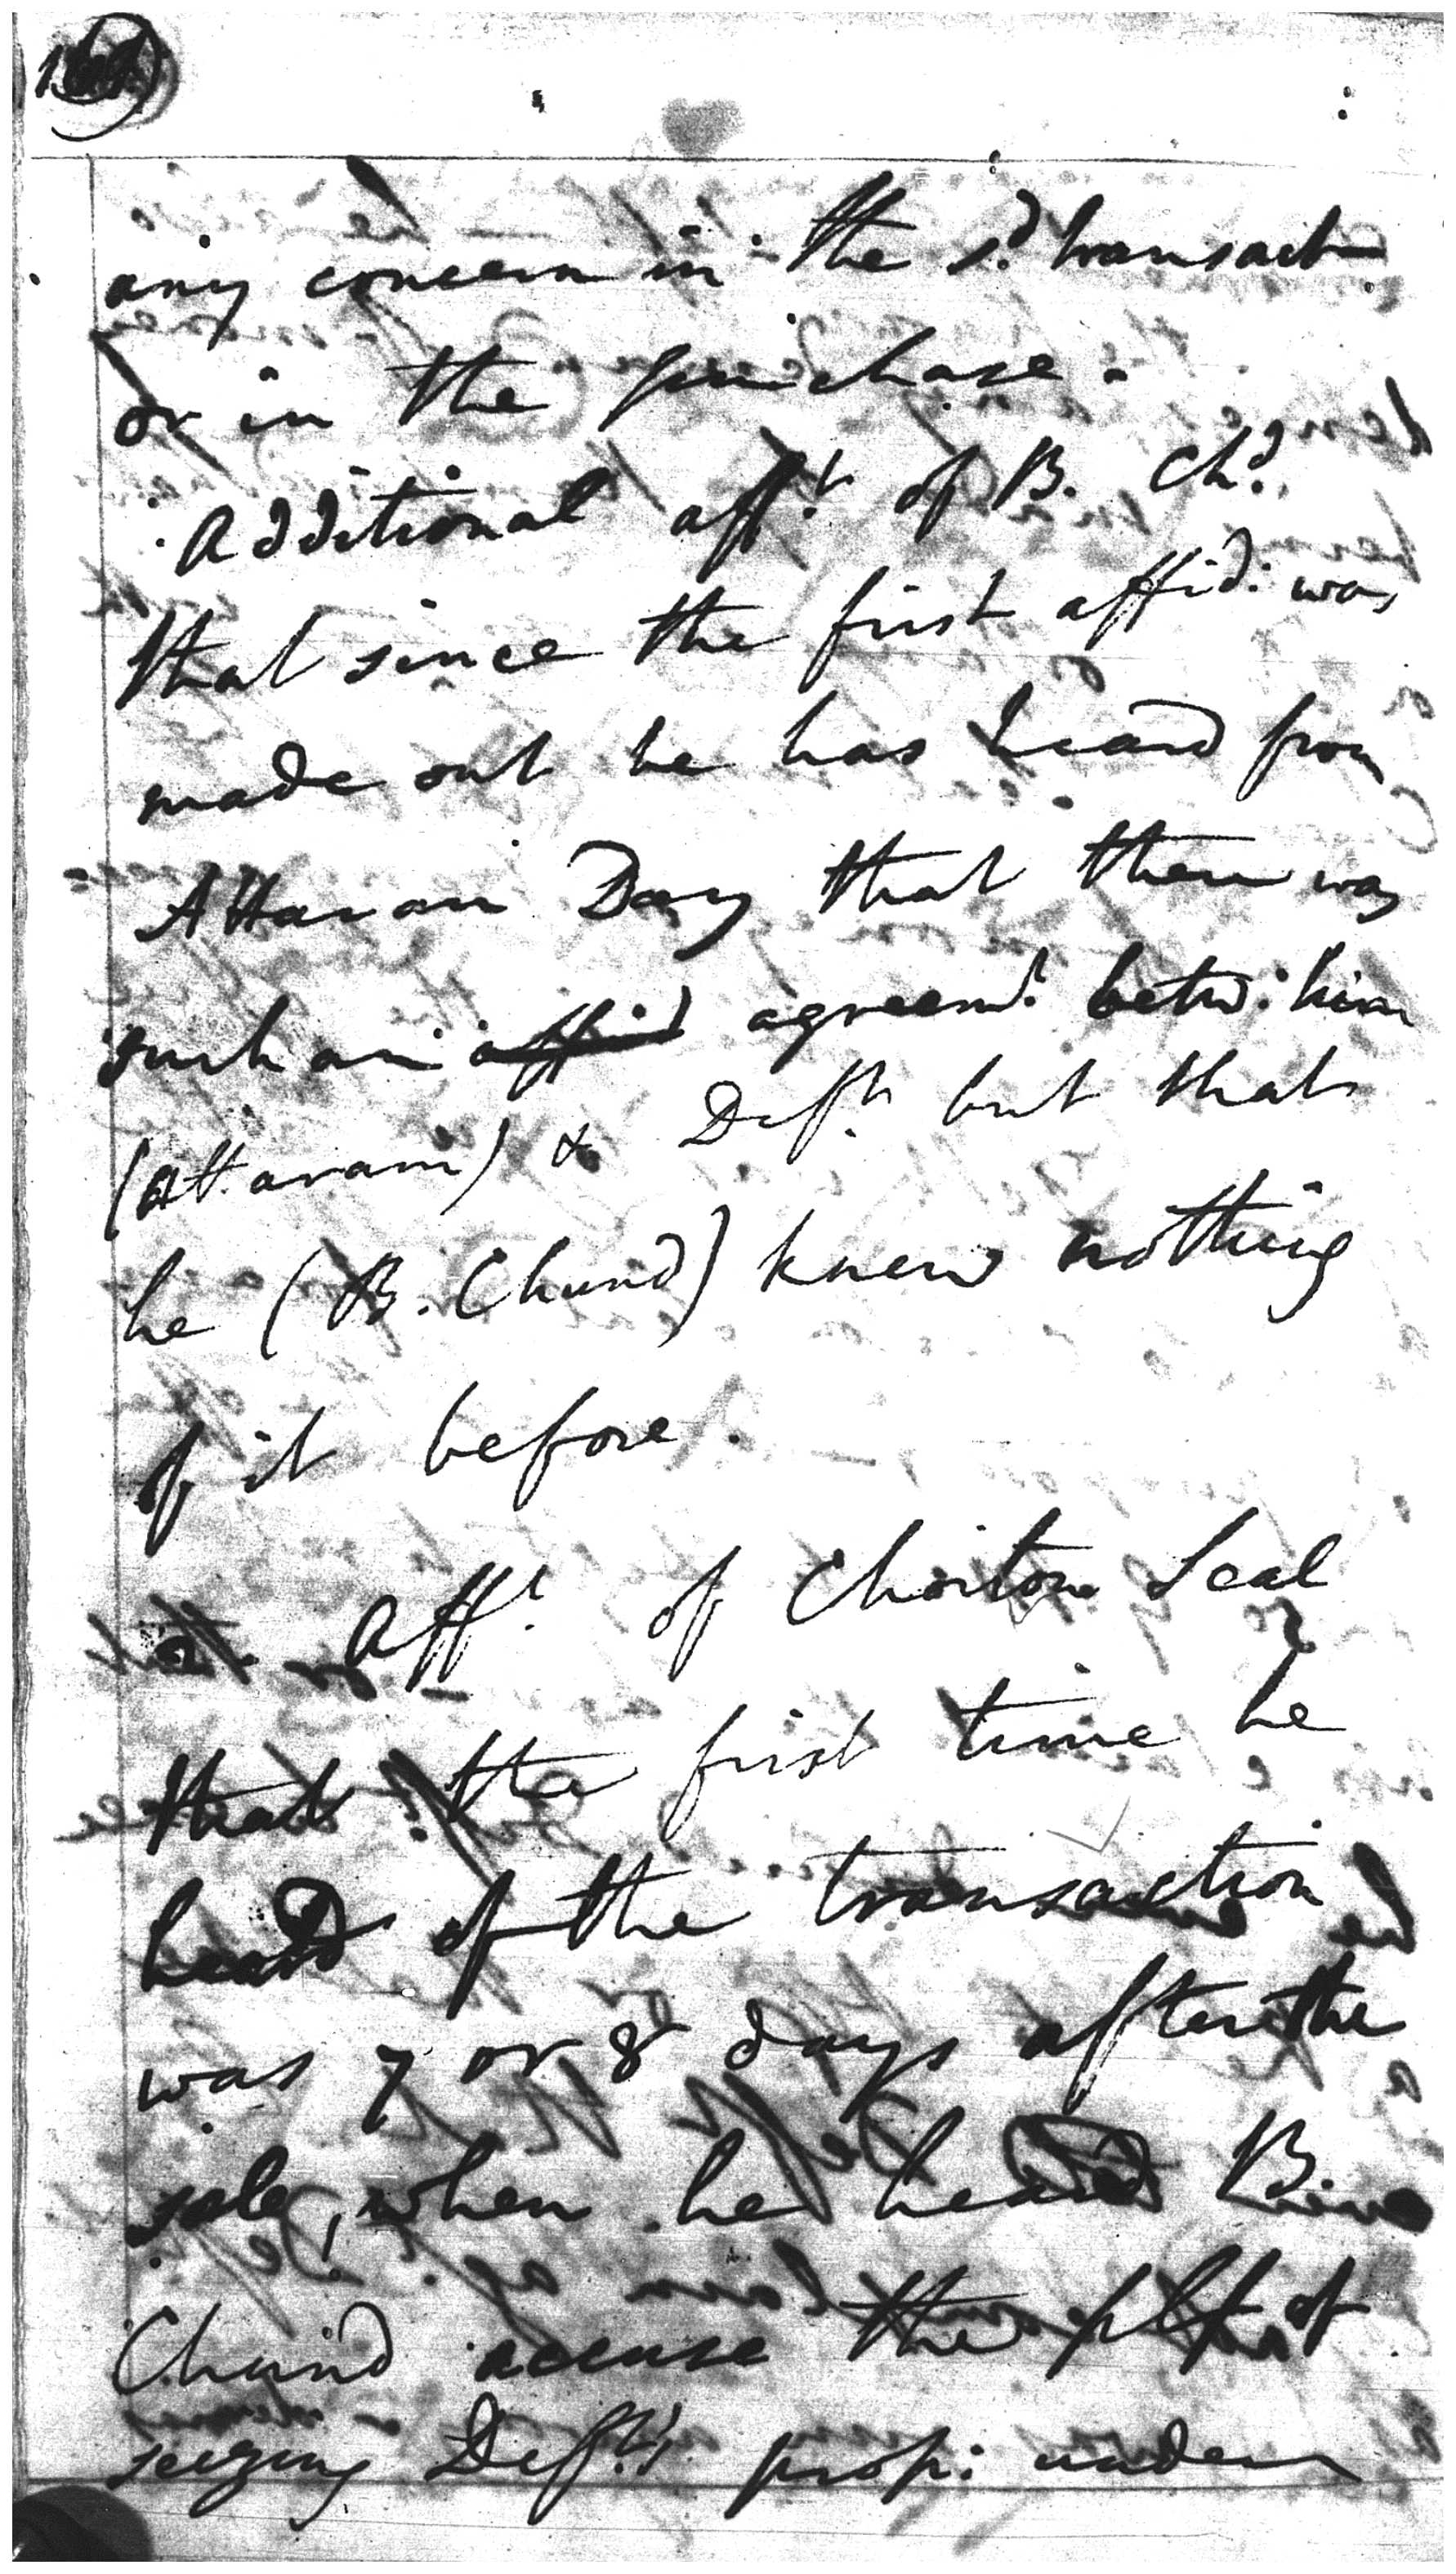 any concern in the s.d transactn
or in the purchase.
Additional afft. of B. Chd.
that since the first affid: was
made out he has heard from
Attaram Doy that there was
such an affid agreemt. betw: him
(Attaram) & Deft. but that
he (B. Chund) knew nothing
of it before.
Afft. of Choitone Seal
that the first time he
heard of the transaction
was 7 or 8 days after the
sale, when he heard
Chund accuse the plft of
seizing Deft's prop: under